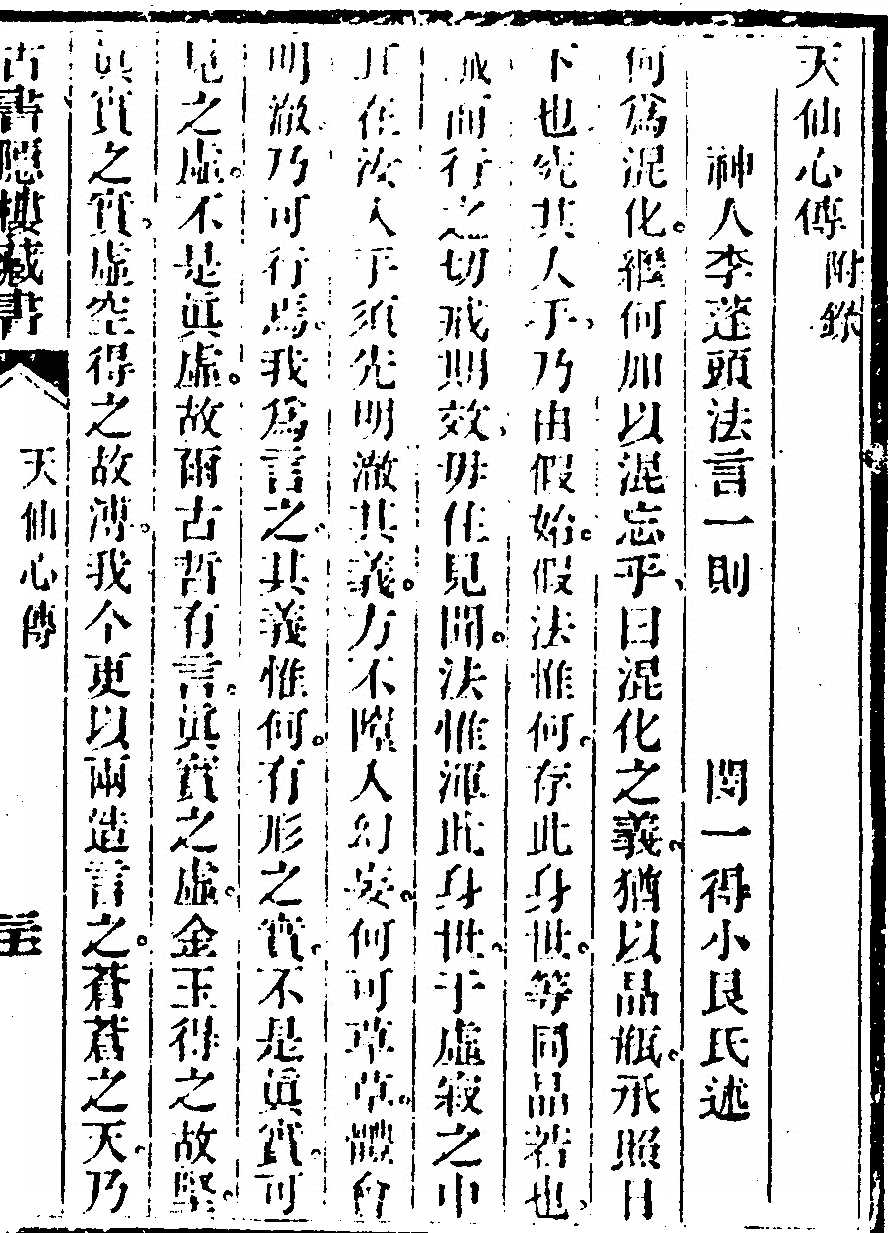 天仙心傳 附錄
神人李蓬頭法言一則 閔一得小艮氏述
何爲混化。繼何加以混忘乎、曰混化之義。猶以晶瓶。承照日
下也。究其人乎、乃由假始。假法惟何。存此身世。等同晶若也、
而行之切戒期效、毋住見聞。法惟渾此身世。于虛寂之中
在汝人乎須先明澈其義。方不墮人幻妄。何可草草。體會
明澈。乃可行焉。我爲言之。其義惟何。有形之實。不是眞實。可
見之虛。不是眞虛。故爾古哲有言。眞實之虛。金玉得之故堅。
眞實之實。虛空得之故溥。我今更以兩造言之。蒼蒼之天。乃
古書隱樓藏書 天仙心傳